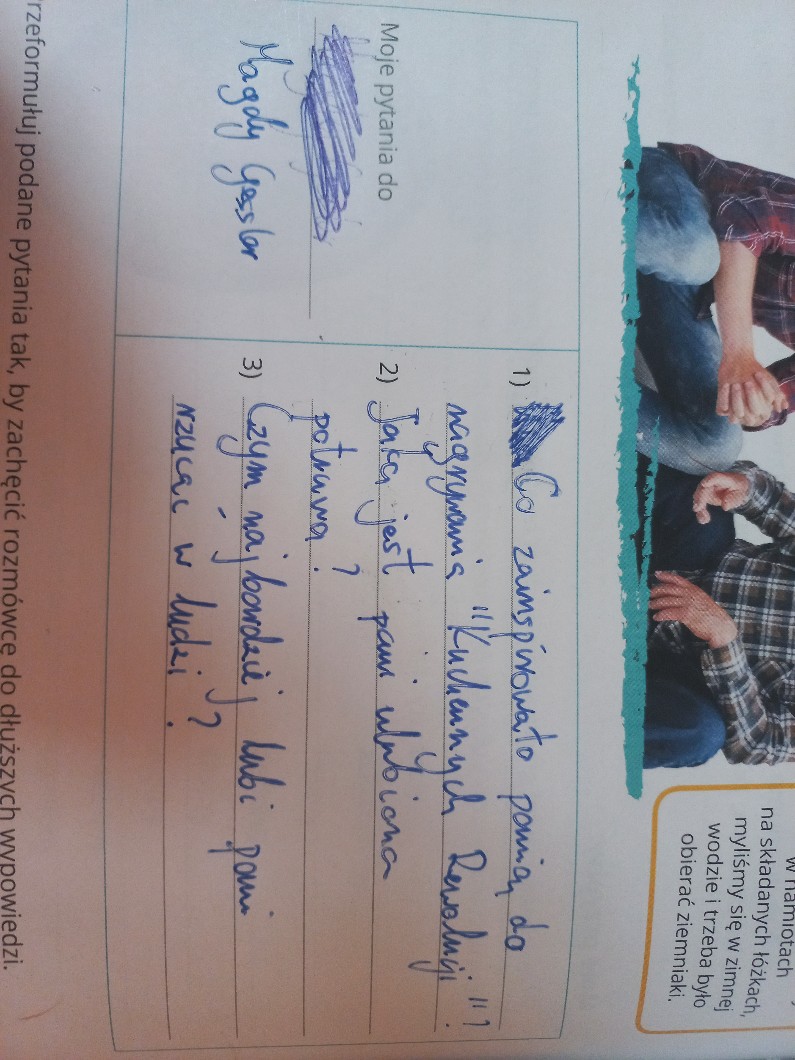 w namiotach
na składanych łóżkach,
myliśmy się w zimnej
wodzie i trzeba było
obierać ziemniaki.
Moje pytania do
Magdy Gessler
1) Co zainspirowało panią do
nagrywania "Kuchennych Rewolucji"?
2) Jaka jest pani ulubiona
potrawa?
3) Czym najbardziej lubi pani
rzucać w ludzi?
rzeformułuj podane pytania tak, by zachęcić rozmówcę do dłuższych wypowiedzi.